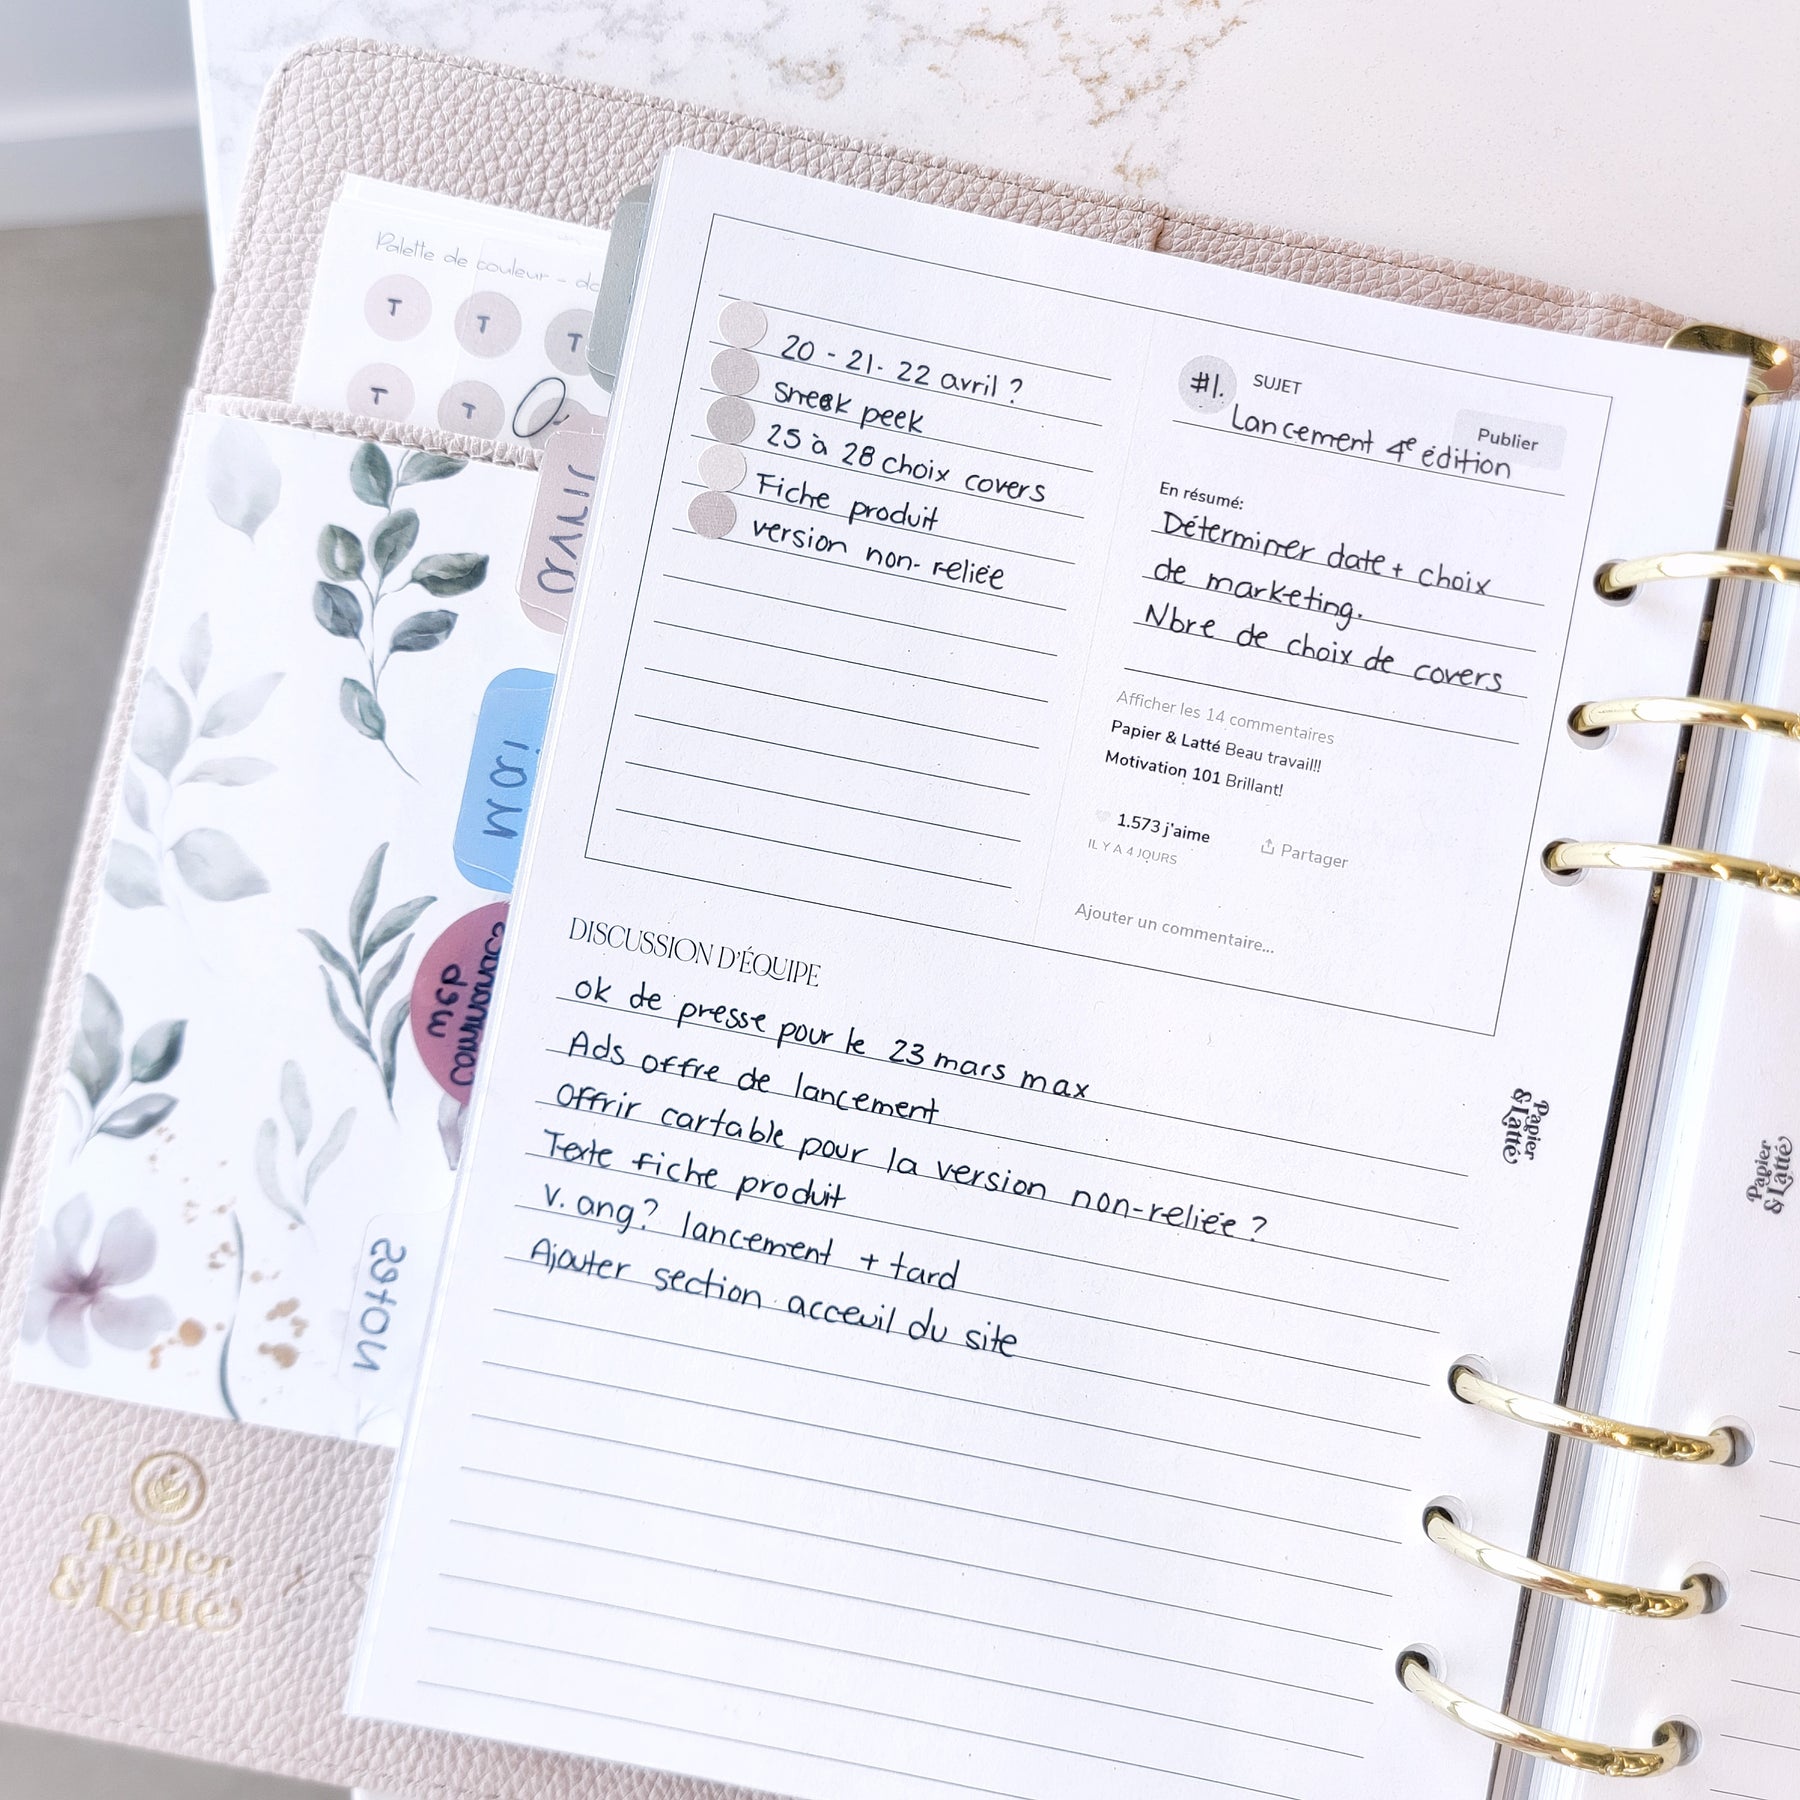 Palette de couleur -
T
T
T
T
T
avril
mai
commandes
dsm
notes
Papier
& Latté
20 - 21 - 22 avril ?
Sneek peek
25 à 28 choix covers
Fiche produit
version non-reliée
#1.
SUJET
Publier
Lancement 4e édition
En résumé:
Déterminer date + choix
de marketing.
Nbre de choix de covers
Afficher les 14 commentaires
Papier & Latté Beau travail!!
Motivation 101 Brillant!
1.573 j'aime
Partager
IL Y A 4 JOURS
Ajouter un commentaire...
DISCUSSION D'ÉQUIPE
ok de presse pour le 23 mars max
Ads offre de lancement
Offrir cartable pour la version non-reliée ?
Texte fiche produit
V. ang? lancement + tard
Ajouter section acceuil du site
Papier
& Latté
Papier
& Latté